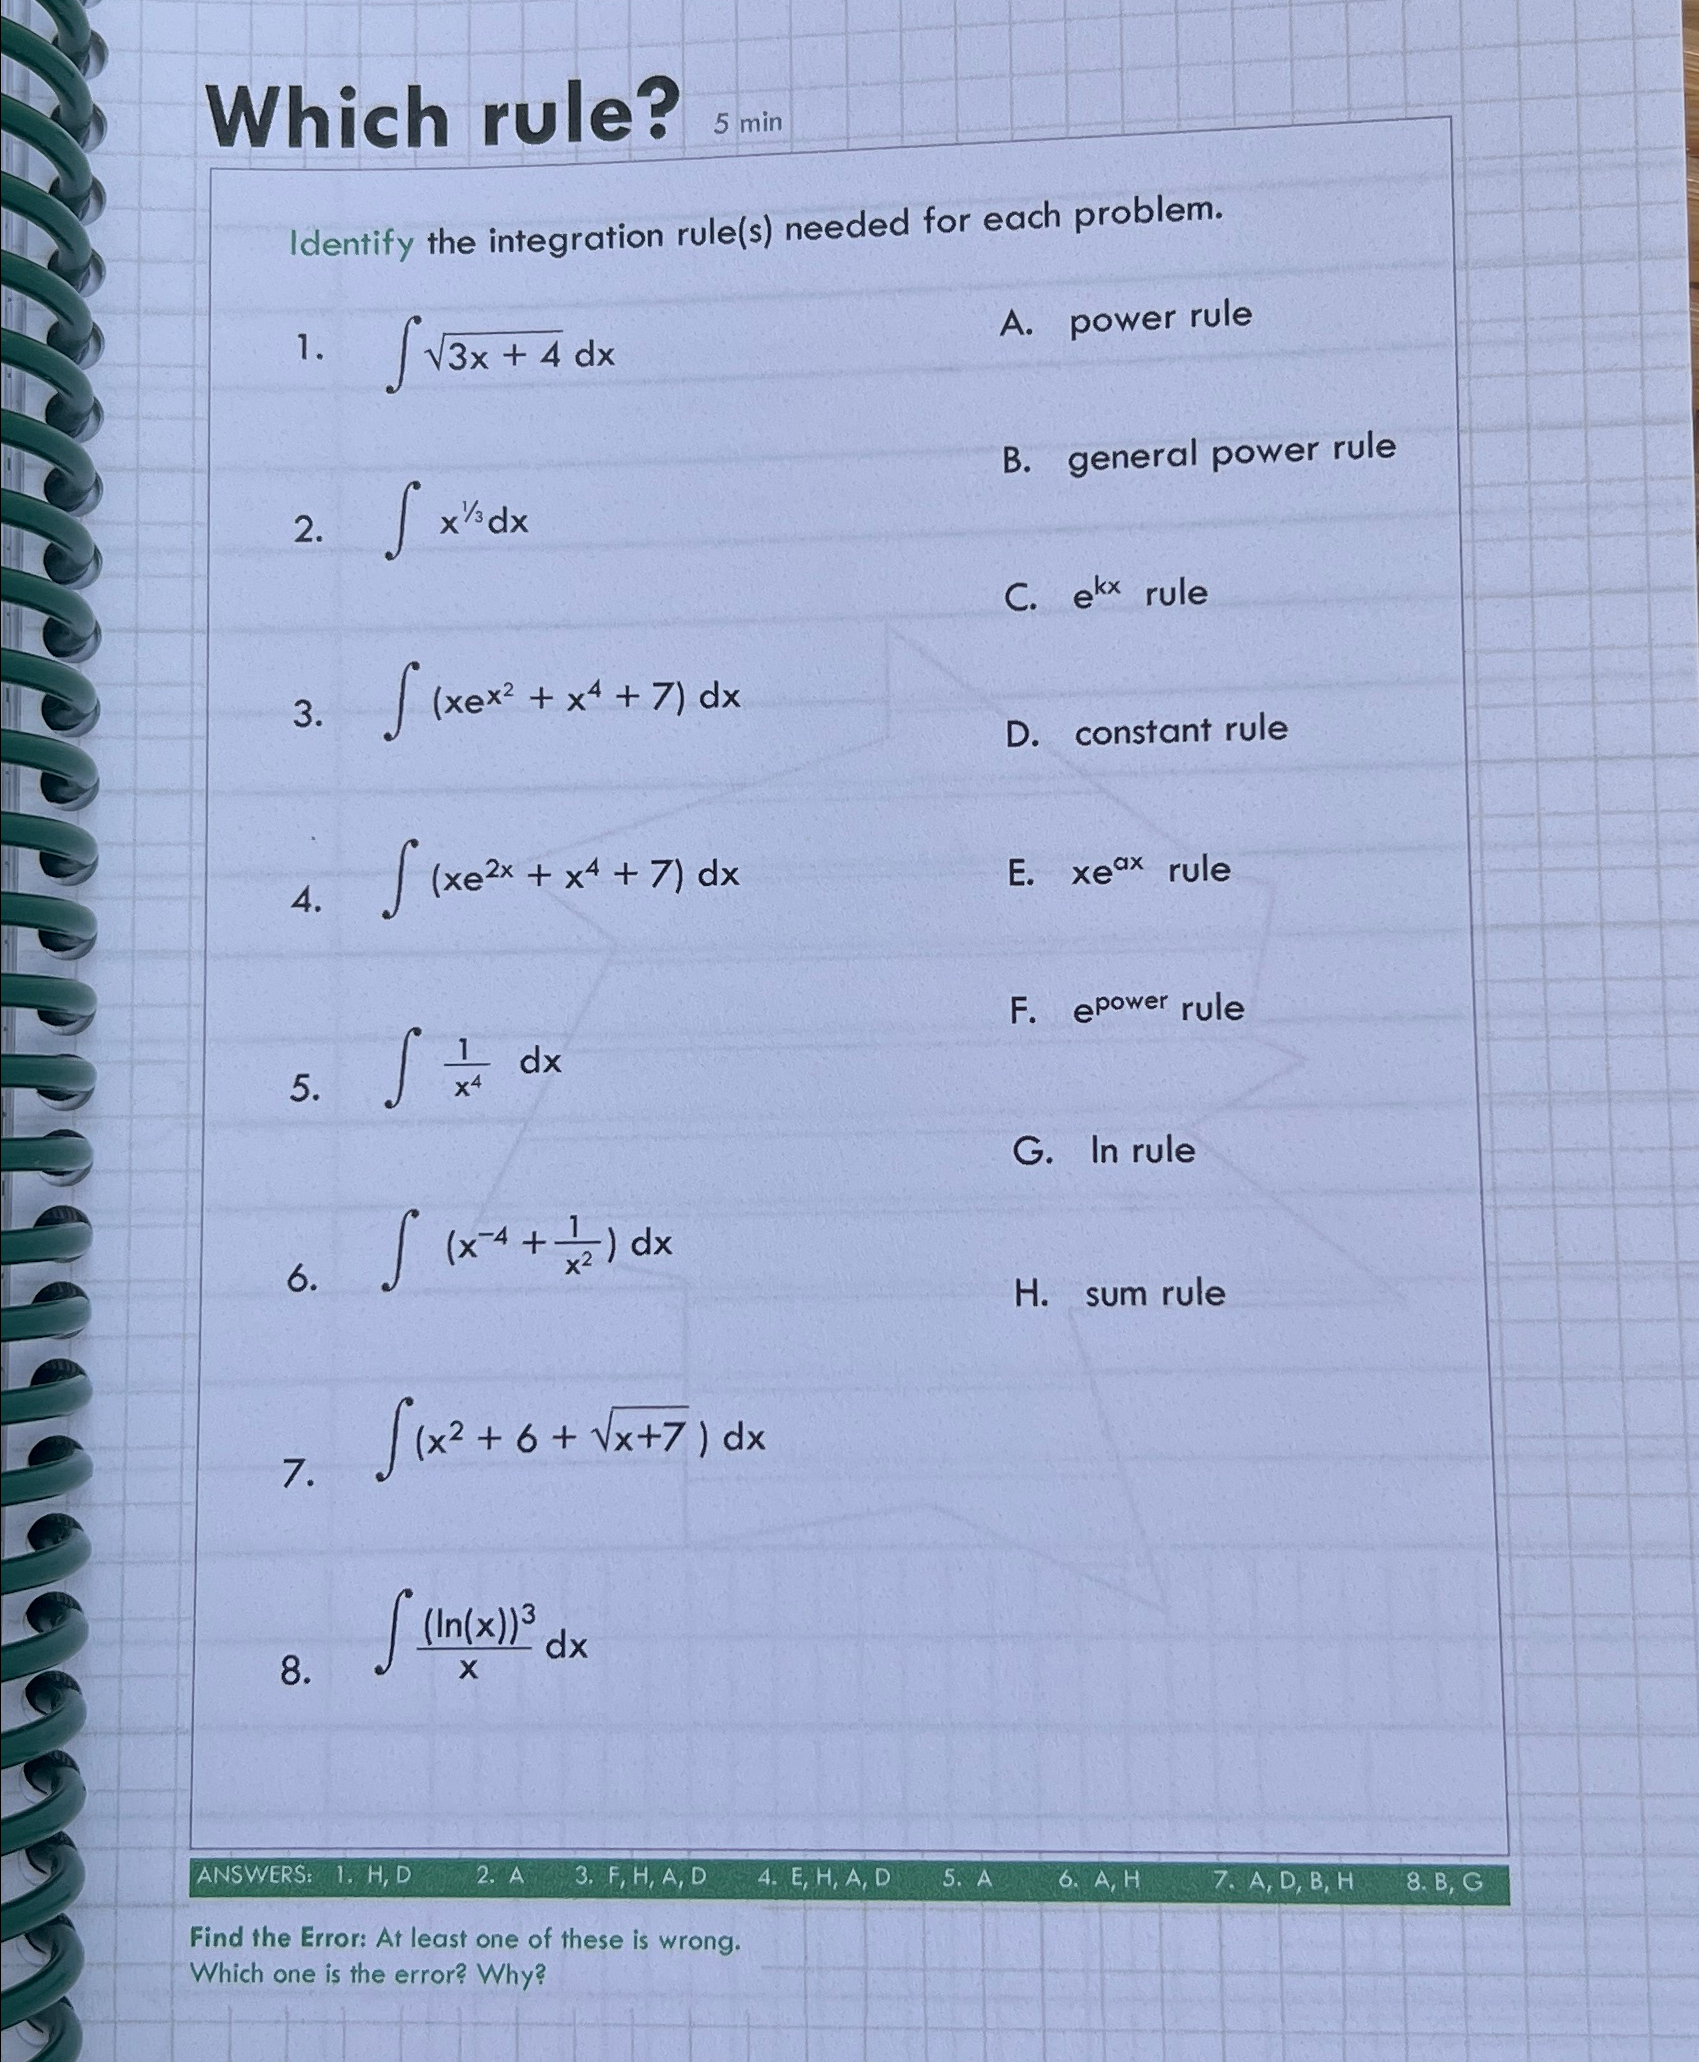 Which rule? 5 min
Identify the integration rule(s) needed for each problem.
1. ∫ √(3x + 4) dx
A. power rule
B. general power rule
2. ∫ x^⅓ dx
C. e^kx rule
3. ∫ (xe^x² + x⁴ + 7) dx
D. constant rule
4. ∫ (xe^2x + x⁴ + 7) dx
E. xe^ax rule
F. e^power rule
5. ∫ 1/x⁴ dx
G. ln rule
6. ∫ (x⁻⁴ + 1/x²) dx
H. sum rule
7. ∫(x² + 6 + √(x+7) ) dx
8. ∫ (ln(x))³/x dx
ANSWERS: 1. H, D 2. A 3. F, H, A, D 4. E, H, A, D 5. A 6. A, H 7. A, D, B, H 8. B, G
Find the Error: At least one of these is wrong.
Which one is the error? Why?